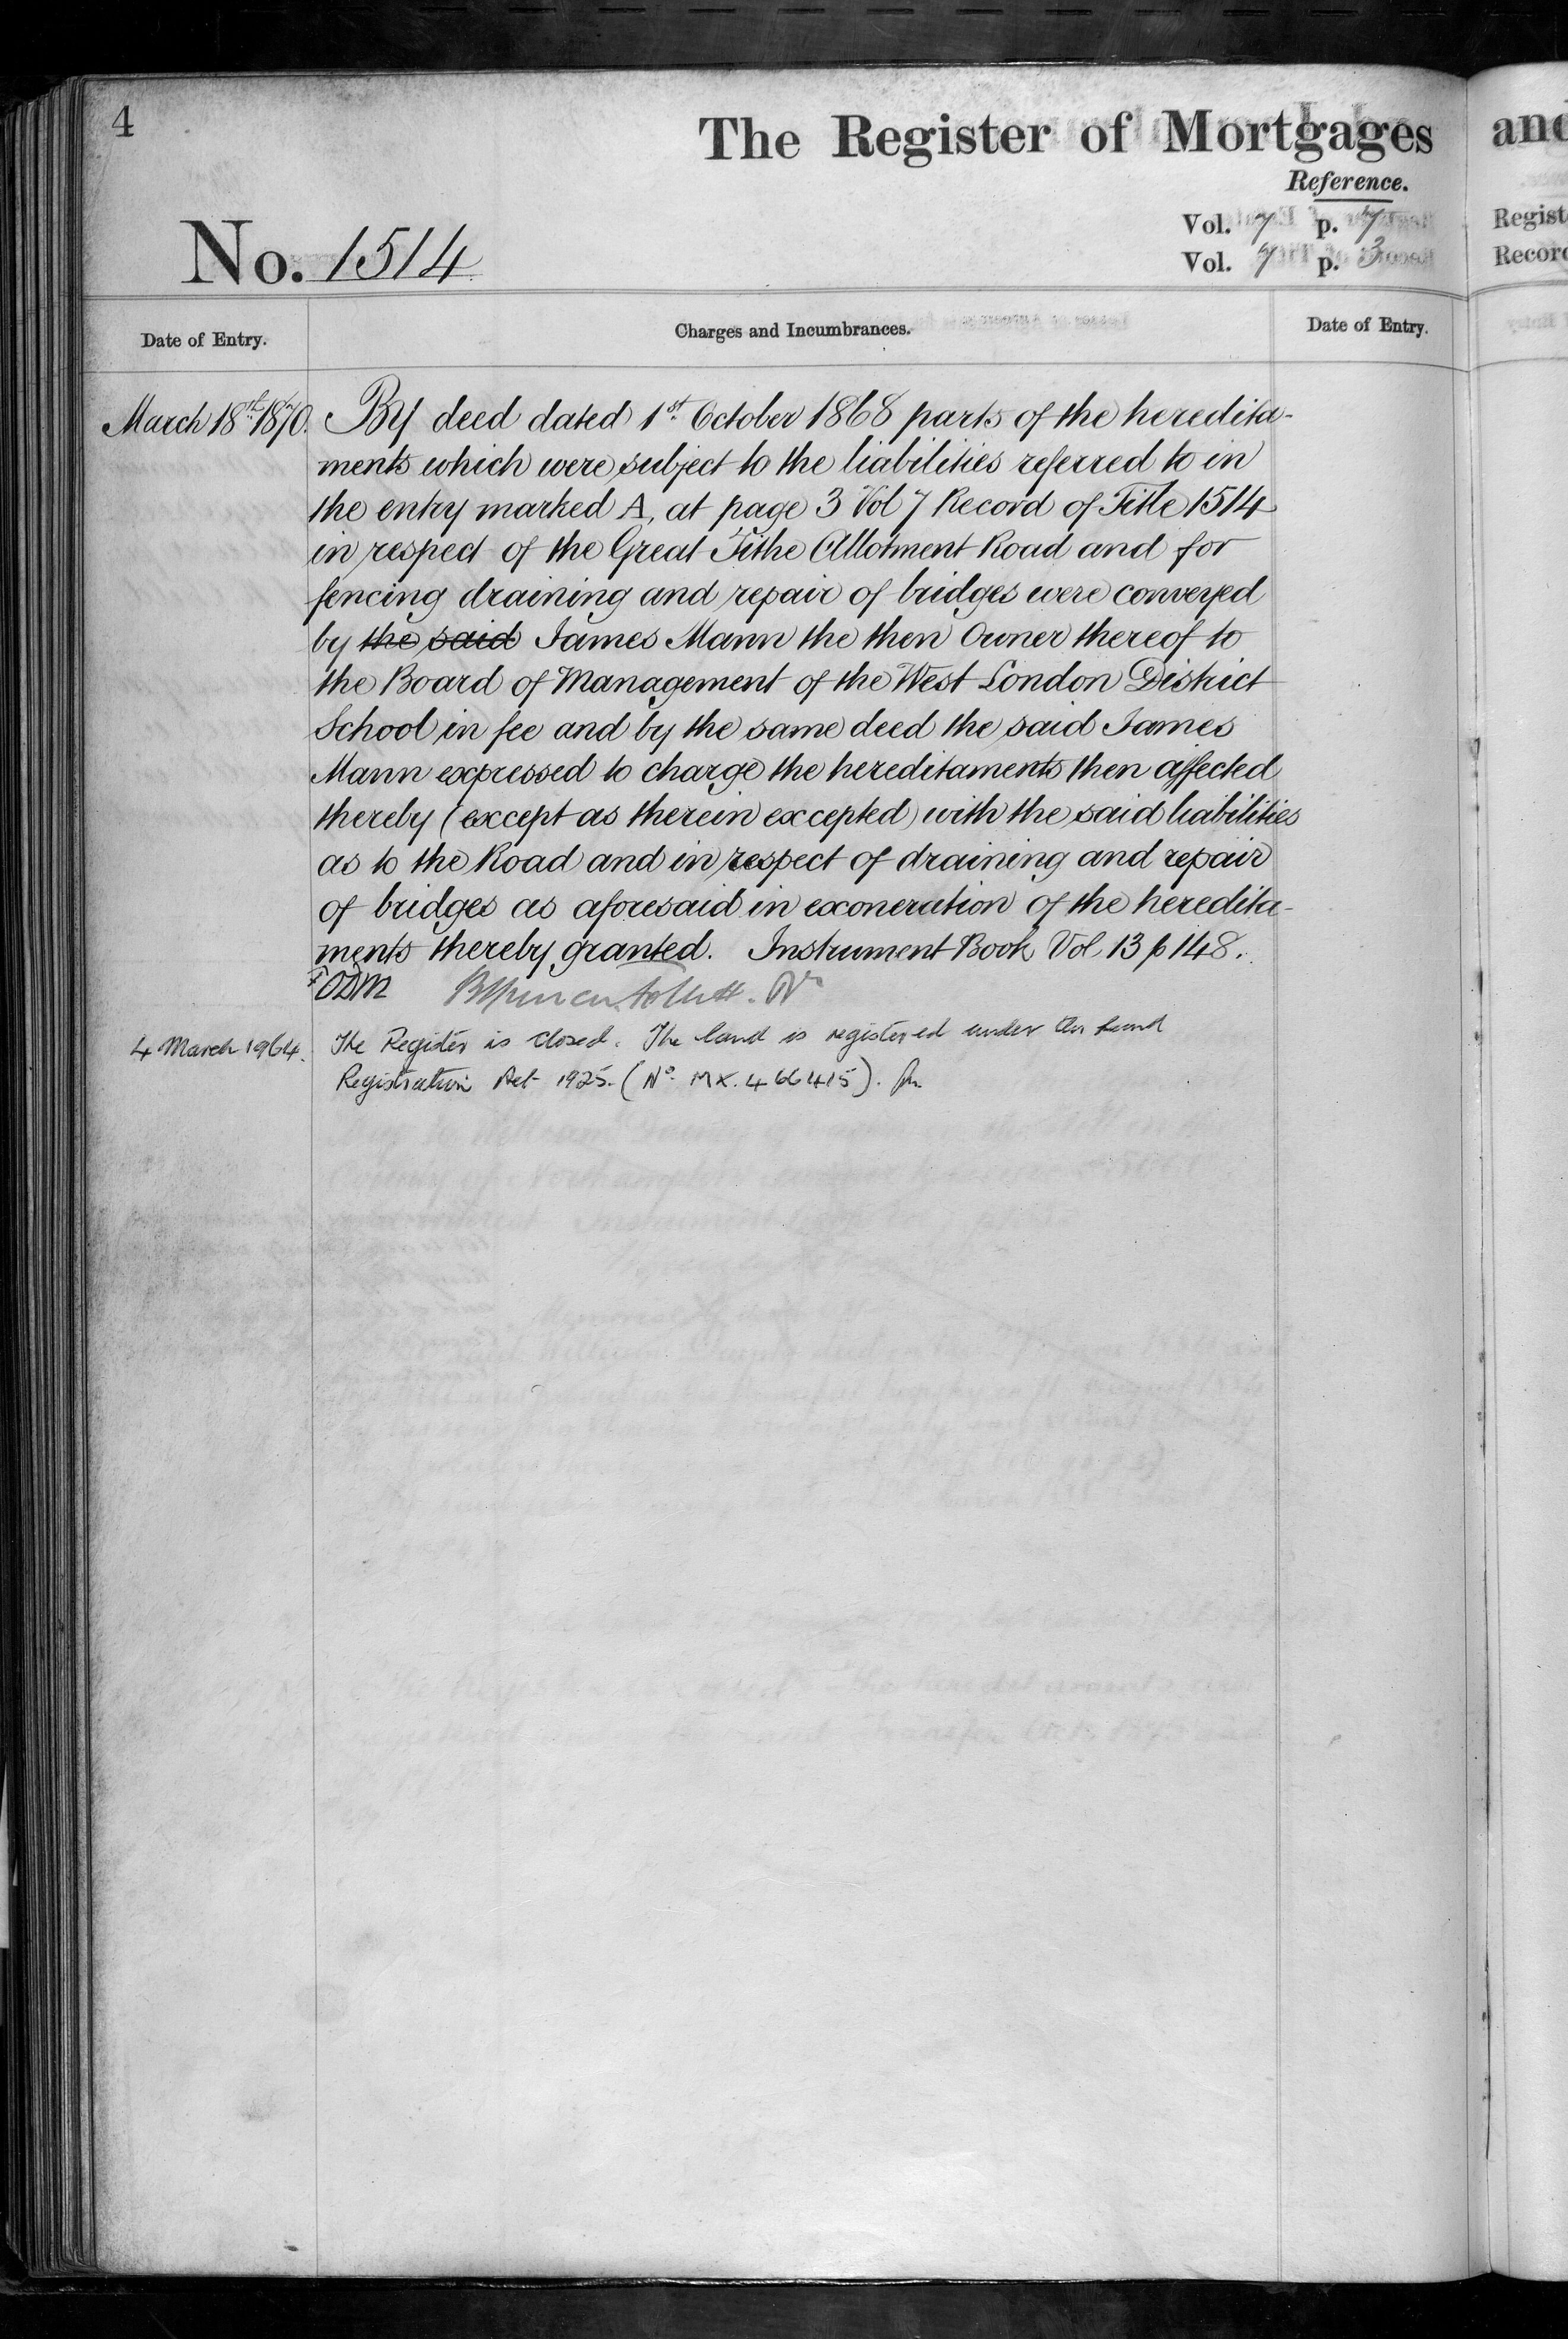 4
The Register of Mortgages
and
Reference.
Vol. 7 p. 7
Vol. 7 p. 3
No. 1514
Date of Entry.
Charges and Incumbrances.
Date of Entry.
March 18th 1870.
By deed dated 1st. October 1868 parts of the heredita-
ments which were subject to the liabilities referred to in
the entry marked A, at page 3 Vol 7 Record of Title 1514
in respect of the Great Tithe Allotment Road and for
fencing draining and repair of bridges were conveyed
by the said James Mann the then Owner thereof to
the Board of Management of the West London District
School in fee and by the same deed the said James
Mann expressed to charge the hereditaments then affected
thereby (except as therein excepted) with the said liabilities
as to the Road and in respect of draining and repair
of bridges as aforesaid in exoneration of the heredita-
ments thereby granted. Instrument Book Vol. 13 p 148.
ODM
4 March 1964.
The Register is closed. The land is registered under the Land
Registration Act 1925. (No. MX. 466415).
Regist
Record